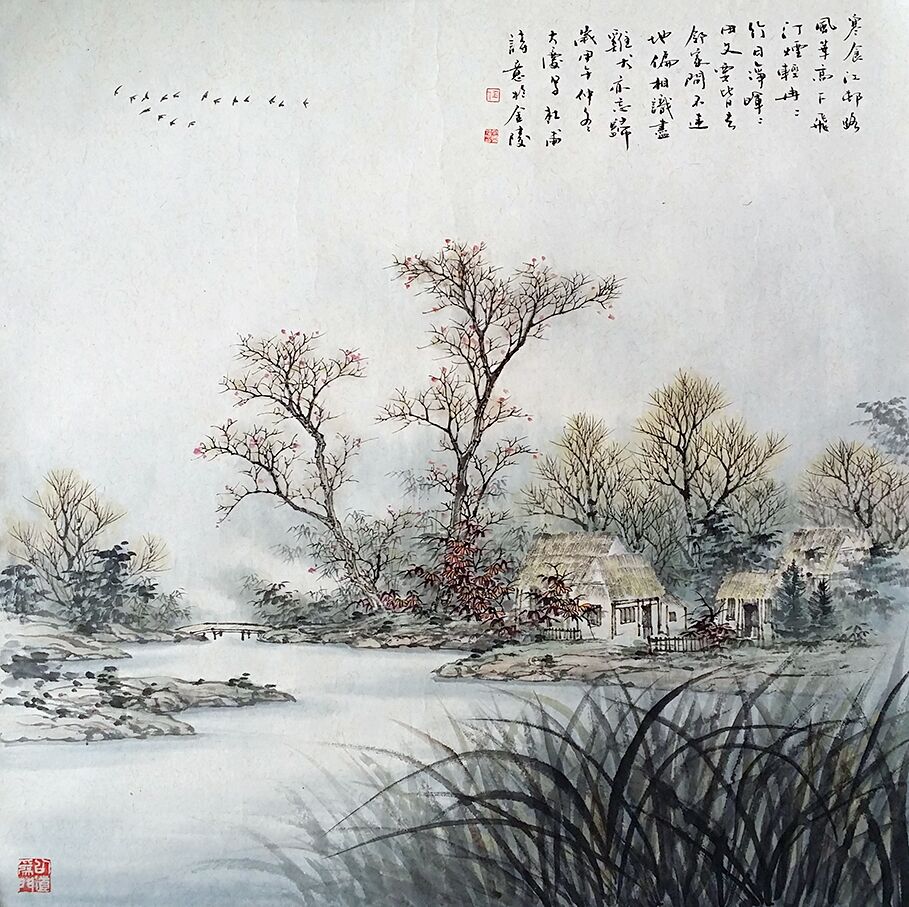 寒食江邨路
風華高下飛
汀煙輕冉〻
竹日淨暉〻
田父要皆去
鄰家問不違
地偏相識盡
雞犬亦忘歸
歲甲午仲冬
大慶寫杜甫
詩意於金陵